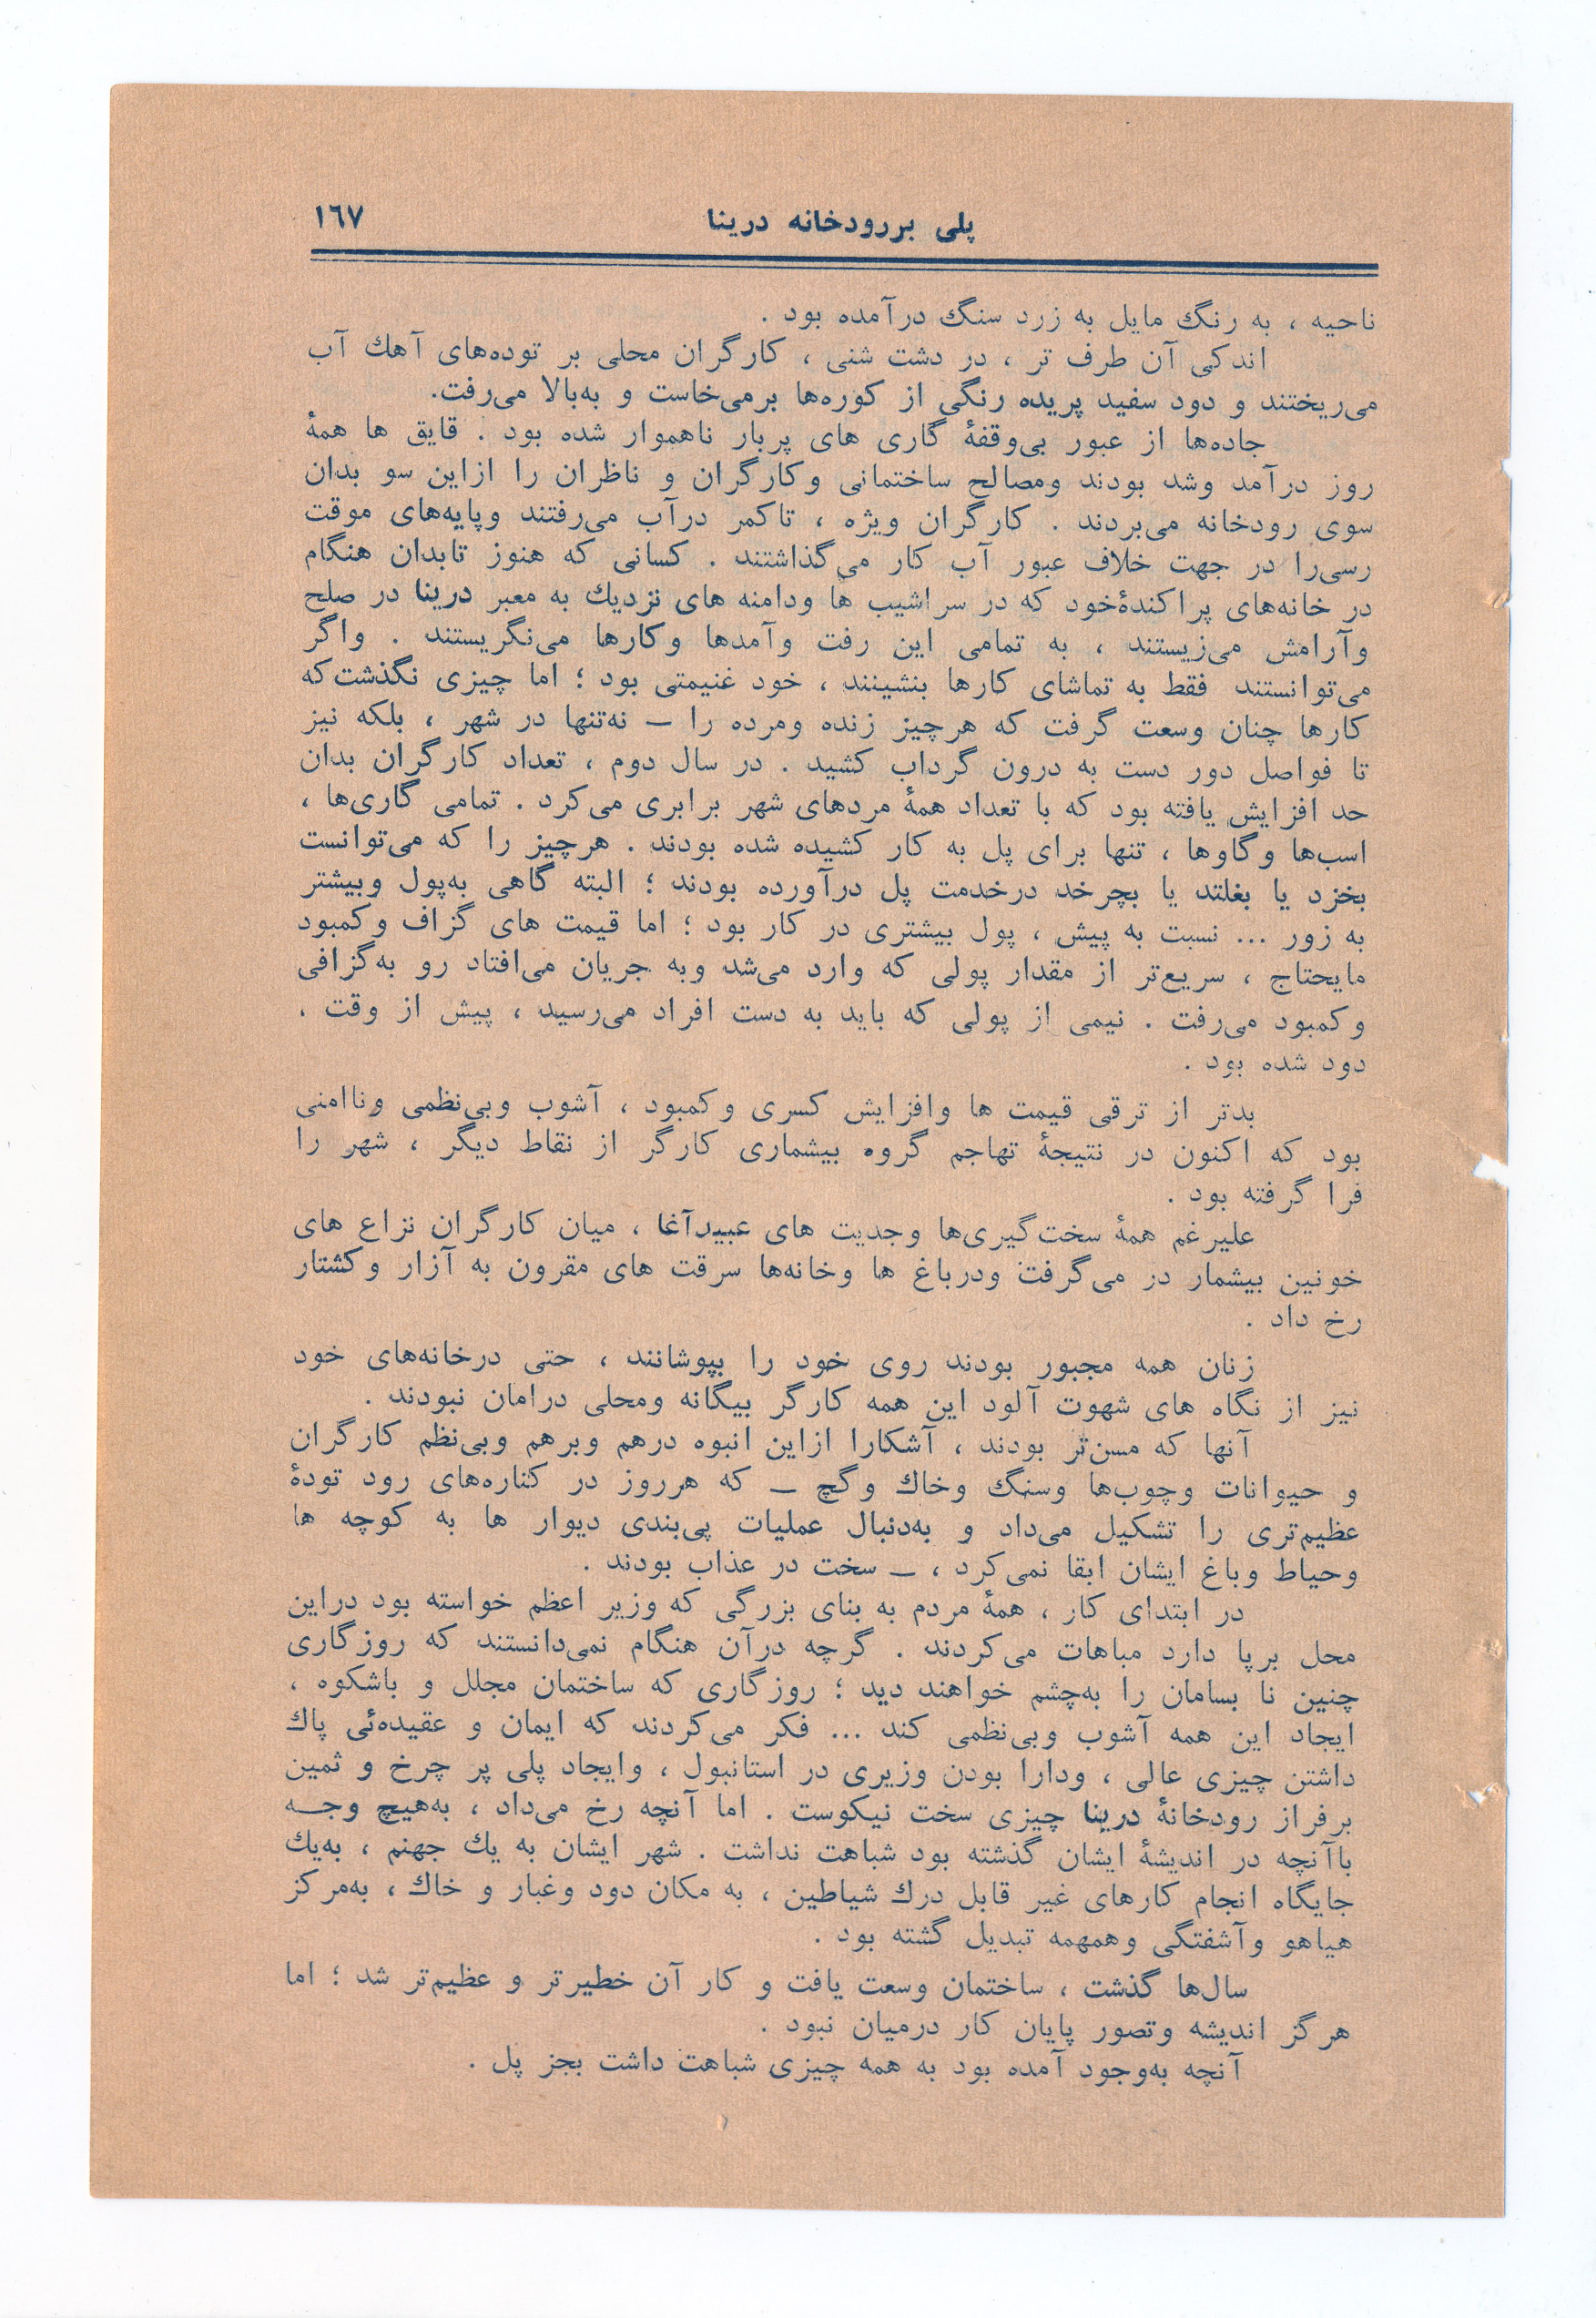 پلی بررودخانه درینا
۱٦۷
ناحیه ، به رنگ مایل به زرد سنگ درآمده بود .
اندکی آن طرف تر ، در دشت شنی ، کارگران محلی بر توده‌های آهك آب
می‌ریختند و دود سفید پریده رنگی از کوره‌ها برمی‌خاست و به‌بالا می‌رفت.
جاده‌ها از عبور بی‌وقفهٔ گاری های پربار ناهموار شده بود . قایق ها همهٔ
روز درآمد وشد بودند ومصالح ساختمانی وکارگران و ناظران را ازاین سو بدان
سوی رودخانه می‌بردند . کارگران ویژه ، تاکمر درآب می‌رفتند وپایه‌های موقت
رسی‌را در جهت خلاف عبور آب کار می‌گذاشتند . کسانی که هنوز تابدان هنگام
در خانه‌های پراکندهٔ‌خود که در سراشیب ها ودامنه های نزدیك به معبر درینا در صلح
وآرامش می‌زیستند ، به تمامی این رفت وآمدها وکارها می‌نگریستند . واگر
می‌توانستند فقط به تماشای کارها بنشینند ، خود غنیمتی بود ؛ اما چیزی نگذشت‌که
کارها چنان وسعت گرفت که هرچیز زنده ومرده را — نه‌تنها در شهر ، بلکه نیز
تا فواصل دور دست به درون گرداب کشید . در سال دوم ، تعداد کارگران بدان
حد افزایش یافته بود که با تعداد همهٔ مردهای شهر برابری می‌کرد . تمامی گاری‌ها ،
اسب‌ها وگاوها ، تنها برای پل به کار کشیده شده بودند . هرچیز را که می‌توانست
بخزد یا بغلتد یا بچرخد درخدمت پل درآورده بودند ؛ البته گاهی به‌پول وبیشتر
به زور ... نسبت به پیش ، پول بیشتری در کار بود ؛ اما قیمت های گزاف وکمبود
مایحتاج ، سریع‌تر از مقدار پولی که وارد می‌شد وبه جریان می‌افتاد رو به‌گزافی
وکمبود می‌رفت . نیمی از پولی که باید به دست افراد می‌رسید ، پیش از وقت ،
دود شده بود .
بدتر از ترقی قیمت ها وافزایش کسری وکمبود ، آشوب وبی‌نظمی وناامنی
بود که اکنون در نتیجهٔ تهاجم گروه بیشماری کارگر از نقاط دیگر ، شهر را
فرا گرفته بود .
علیرغم همهٔ سخت‌گیری‌ها وجدیت های عبیدآغا ، میان کارگران نزاع های
خونین بیشمار در می‌گرفت ودرباغ ها وخانه‌ها سرقت های مقرون به آزار وکشتار
رخ داد .
زنان همه مجبور بودند روی خود را بپوشانند ، حتی درخانه‌های خود
نیز از نگاه های شهوت آلود این همه کارگر بیگانه ومحلی درامان نبودند .
آنها که مسن‌تر بودند ، آشکارا ازاین انبوه درهم وبرهم وبی‌نظم کارگران
و حیوانات وچوب‌ها وسنگ وخاك وگچ — که هرروز در کناره‌های رود تودهٔ
عظیم‌تری را تشکیل می‌داد و به‌دنبال عملیات پی‌بندی دیوار ها به کوچه ها
وحیاط وباغ ایشان ابقا نمی‌کرد ، — سخت در عذاب بودند .
در ابتدای کار ، همهٔ مردم به بنای بزرگی که وزیر اعظم خواسته بود دراین
محل برپا دارد مباهات می‌کردند . گرچه درآن هنگام نمی‌دانستند که روزگاری
چنین نا بسامان را به‌چشم خواهند دید ؛ روزگاری که ساختمان مجلل و باشکوه ،
ایجاد این همه آشوب وبی‌نظمی کند ... فکر می‌کردند که ایمان و عقیده‌ئی پاك
داشتن چیزی عالی ، ودارا بودن وزیری در استانبول ، وایجاد پلی پر چرخ و ثمین
برفراز رودخانهٔ درینا چیزی سخت نیکوست . اما آنچه رخ می‌داد ، به‌هیچ وجـــه
باآنچه در اندیشهٔ ایشان گذشته بود شباهت نداشت . شهر ایشان به یك جهنم ، به‌یك
جایگاه انجام کارهای غیر قابل درك شیاطین ، به مکان دود وغبار و خاك ، به‌مرکز
هیاهو وآشفتگی وهمهمه تبدیل گشته بود .
سال‌ها گذشت ، ساختمان وسعت یافت و کار آن خطیرتر و عظیم‌تر شد ؛ اما
هرگز اندیشه وتصور پایان کار درمیان نبود .
آنچه به‌وجود آمده بود به همه چیزی شباهت داشت بجز پل .